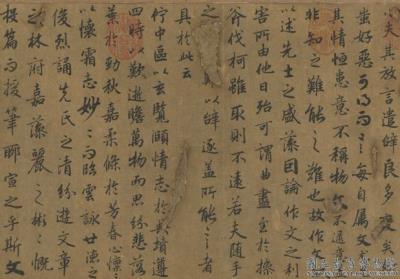 以夫其放言遣辭良多變矣
蚩好惡可得而言每自属文
其情恒患意不稱物文不逮
非知之難能之難也故作
以述先士之盛藻因論作文之
害所由他日殆可謂曲盡至於操
斧伐柯雖取則不遠若夫随手
之以辭逐盖所能言之者
具於此云
佇中區以玄覽頤情志於典墳遵
四時以歎逝瞻萬物而思紛悲落
葉於勁秋嘉柔條於芳春心懍
以懷霜志眇〻而臨雲詠世德之
俊烈誦先民之清芬遊文章
之林府嘉藻麗之彬〻慨
投篇而援筆聊宣之乎斯文